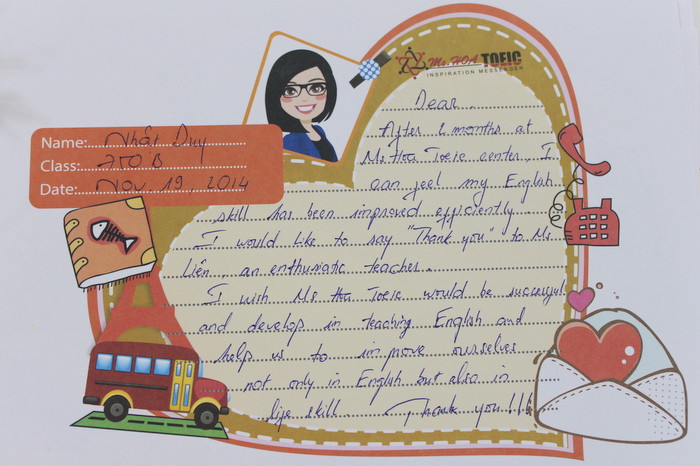 Ms. HOA TOEIC
INSPIRATION MESSENGER
Name: Nhất Duy
Class:
Date: Nov. 19, 2014
Dear.
After 2 months at
Ms. Hoa Toeic center, I
can feel my English
skill has been improved efficiently.
I would like to say "Thank you" to Ms.
Liên, an enthusiatic teacher.
I wish Ms. Hoa Toeic would be successful
and develop in teaching English and
help us to improve ourselves
not only in English but also in
life skill. Thank you!!!